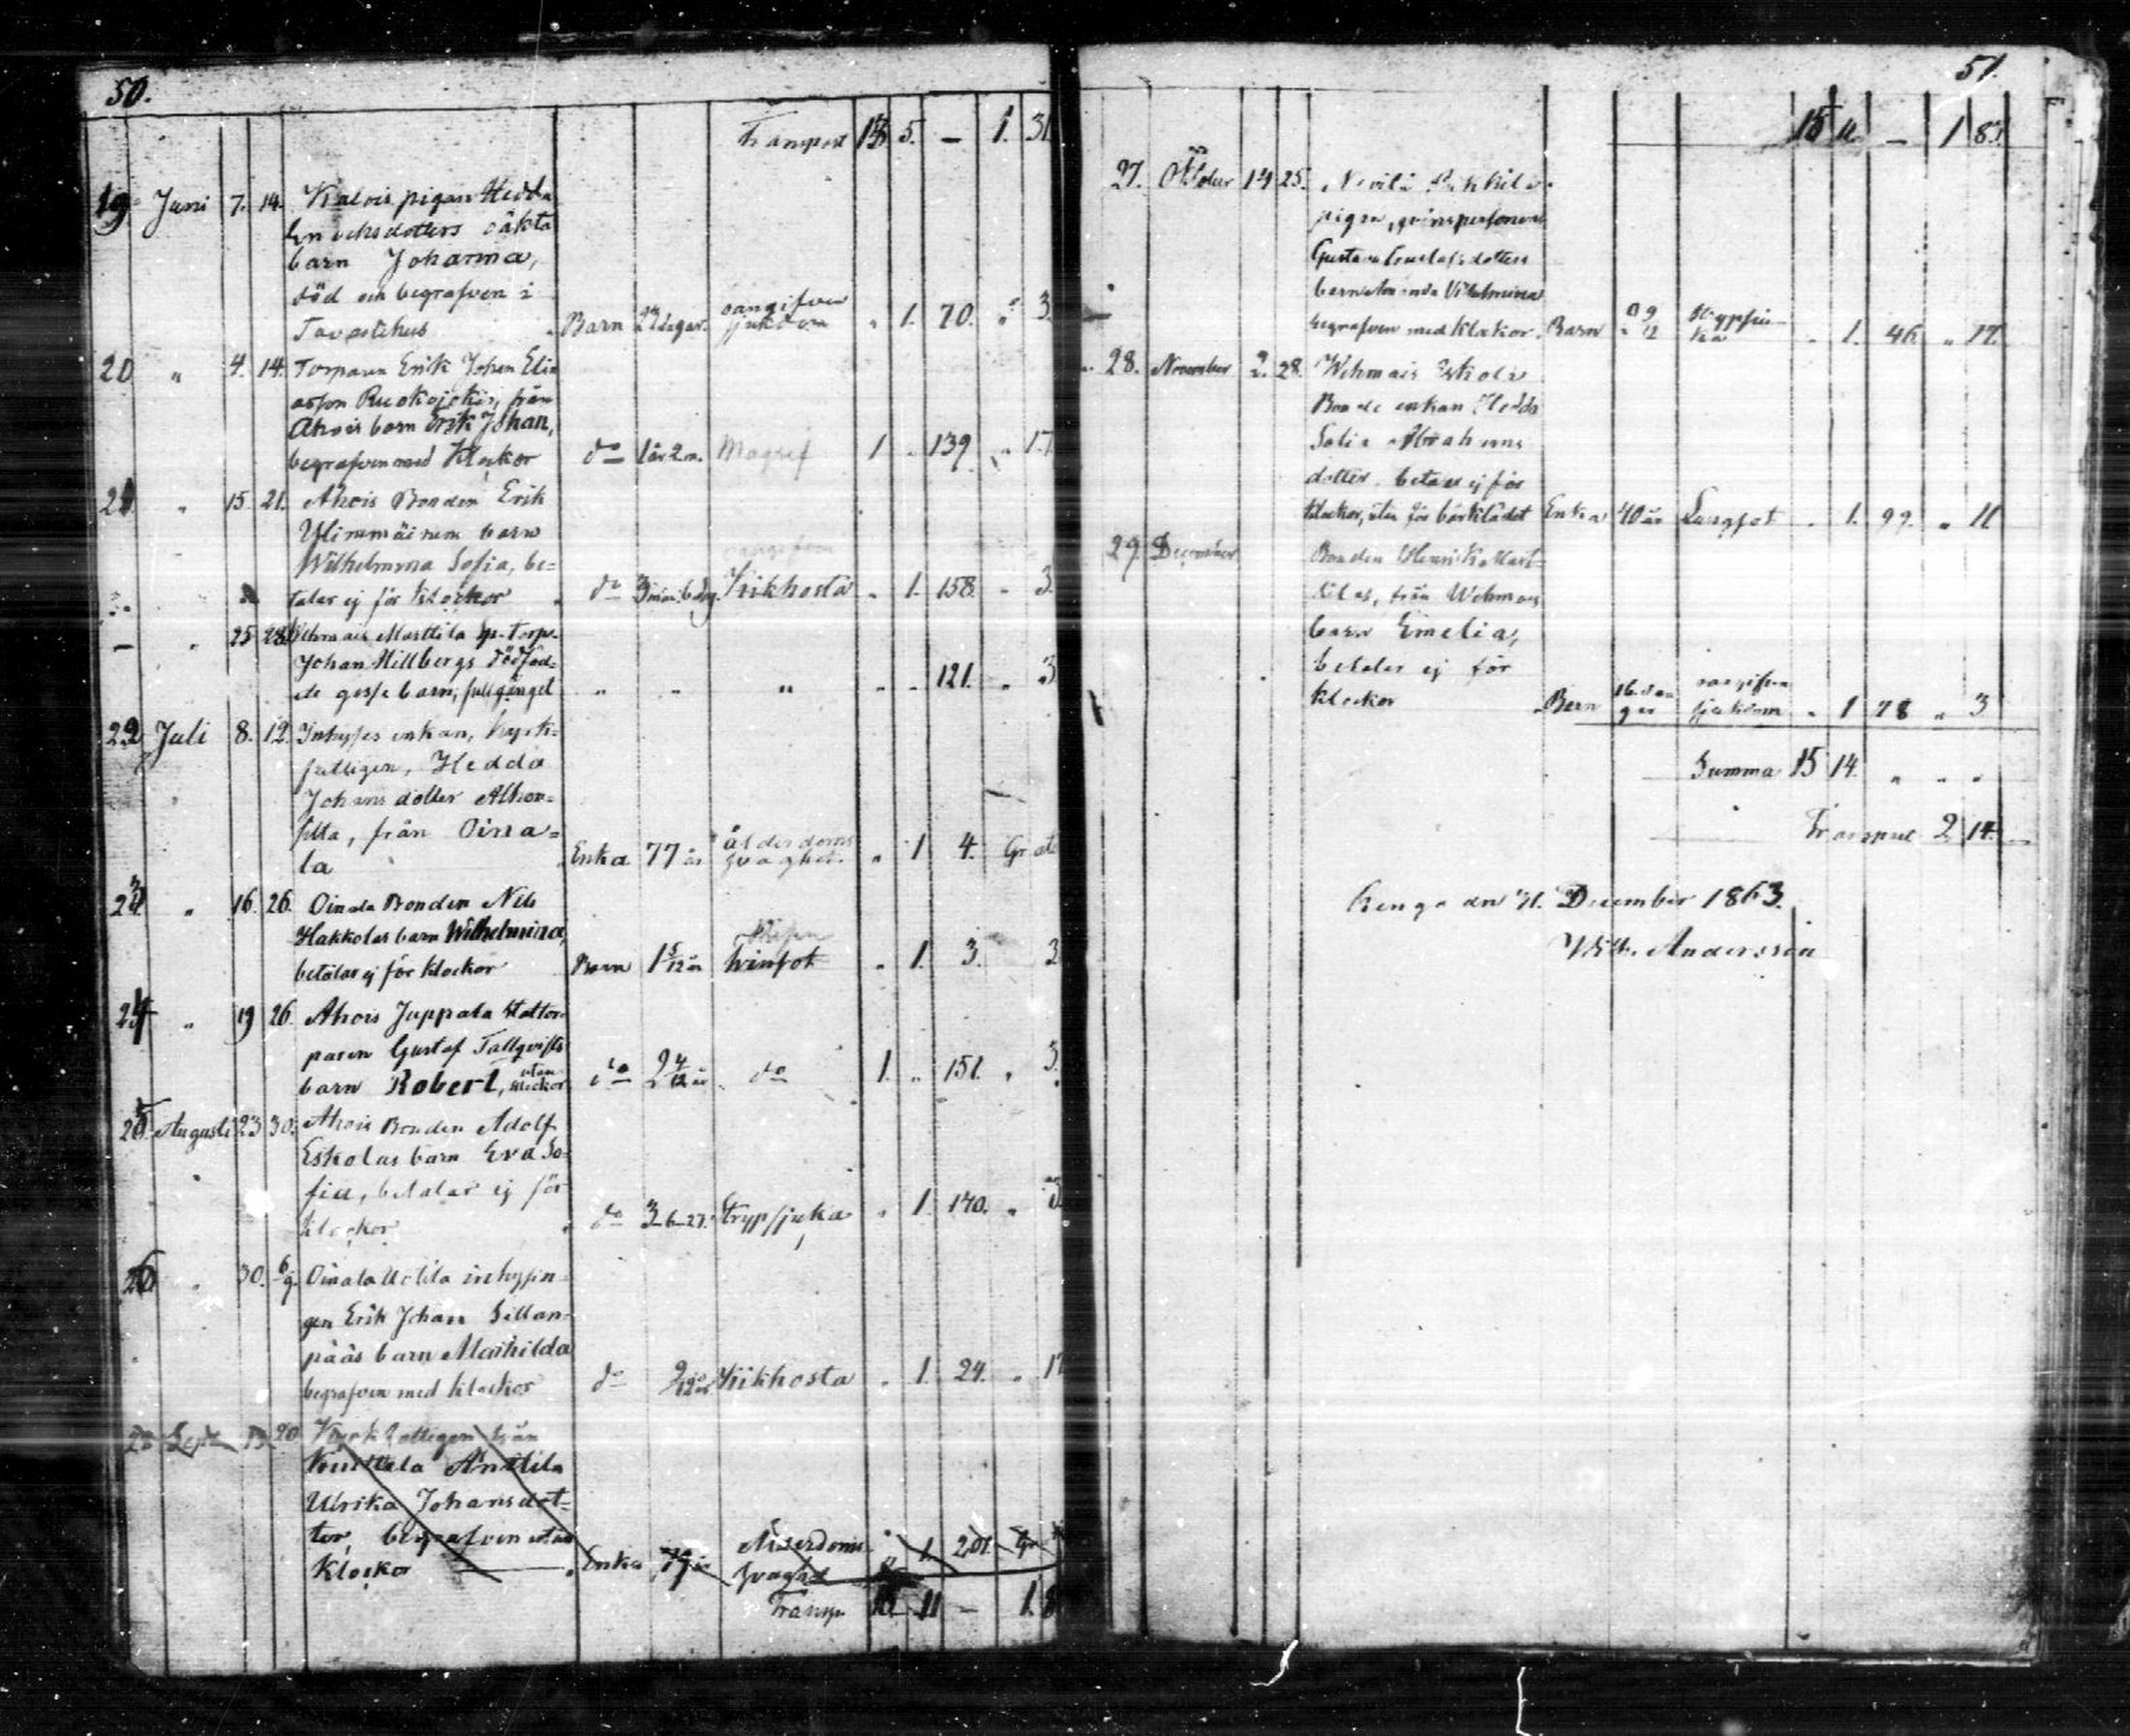 50.
Transport 15 5. — 1. 31
19 Juni 7. 14. Kalois pigan Hedda
Enochsdotters oäkta
barn Johanna,
död och begrafven i
Tavastehus Barn dagar. oangifven sjukdom " 1. 70. " 3.
20 " 4. 14. Torparen Erik Johan Elia
asson Ruokojokis, från
Ahois barn Erik Johan,
begrafven med klockor do 1 år 2 m. 1 " 139 " 17
21 " 15. 21. Ahois Bonden Erik
Ylimmäinens barn
Wilhelmina Sofia, be=
talar ej för klockor do 3 mån. 6 dag. Kikhosta " 1. 158. " 3.
— " 25 28 Wehmais Marttila sp. Torp.
Johan Hillbergs dödföd=
de gosse barn, fullgånget " " " " " 121. " 3
22 Juli 8. 12. Inhyses enkan, kyrk=
fattigen, Hedda
Johansdotter
från Oina=
la Enka 77 år ålderdoms
svaghet. " 1 4. Grat
23 " 16. 26. Oinala Bonden Nils
Hakkolas barn Wilhelmina,
betalar ej för klockor Barn 1 5/12 år " 1. 3. 3
24 " 19 26. Ahois Juppala
paren Gustaf Tallqvists
barn Robert, utan klockor do 2 4/12 år do 1. " 151. " 3.
25 Augusti 23 30. Ahois Bonden Adolf
Eskolas barn Eva So=
fia, betalar ej för
klockor do 3–6–27. Strypsjuka " 1. 140. " 3
26 " 30. 6/9. Oinala Uotila inhysin=
gen Erik Johan Sillan=
pääs barn Mathilda
begrafven med klockor do Kikhosta " 1. 24. " 17
Sept. 13 20 Kyrkfattigen från
Anttila
Ulrika Johansdot=
ter, begrafven utan
klockor Enka 79 år Ålderdoms
svaghet 1. 201. Gr
Transp. 15 11 — 1. 8
51.
15 11. — 1 83.
27. October 14 25.
pigan, qvinspersonen
Gustava Gustafsdotters
barn Amanda Vilhelmina
begrafven med klockor. Barn 9/12 Strypsju=
ka " 1. 46 " 17.
28. November 2. 28. Wehmais Eskola
Bonde enkan Hedda
Sofia Abrahams
dotter, betalar ej för
klockor, utan för bårklädet Enka 40 år Lungsot " 1. 99. " 11.
29. December Bonden Henrik Mart=
tilas, från Wehmais
barn Emelia,
betalar ej för
klockor Barn 16 da
gar oangifven
sjukdom " 1 78 " 3
Summa 15 14. " " "
2 14. —
Rengo den 31. December 1863.
Wilh. Andersson